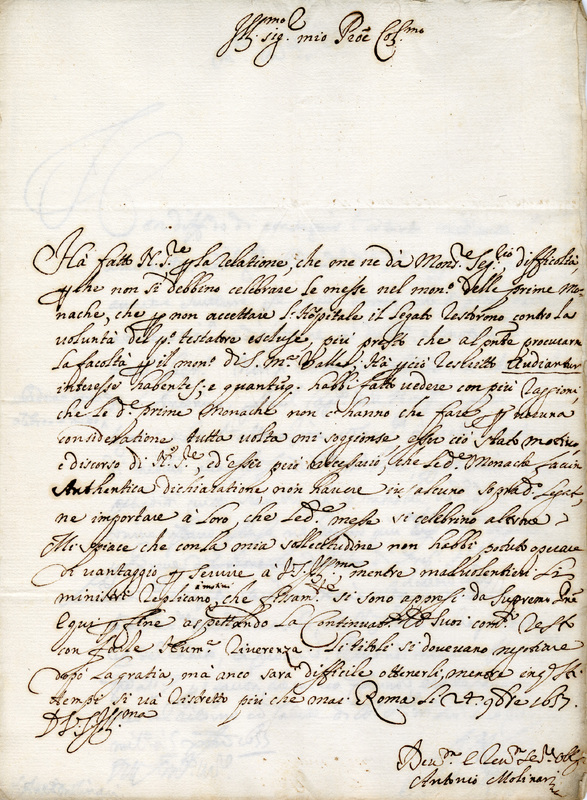 Ill.mo
sig. mio Proẽ Col.mo
Hà fatto N. S.re p la relatione, che me ne dà Mons.r Seg.rio difficoltà
p che non si debbino celebrare le messe nel mon.o delle prime Mo-
nache, che p non accettare l'Hospitale il legato restorno contro la
voluntà del p.o testatore escluse, più presto che al pñte procurarne
la facoltà p il mon.o di S. M.a Hà perciò rescritto Audiantur
interesse habentes; e quantũq. habbi fatto vedere con più raggioni
che le d.e prime Monache non ci hanno che fare p niuna
consideratione tutta volta mi soggionse esser ciò stato motivo
e discorso di N.o S.re, ed esser però necessario, che le d.e Monache faccino
Authentica dichiaratione non havere in alcuno sopra d.o
ne importare à loro, che le d.e messe si celebrino altrove
Mi spiace che con la mia sollecitudine non habbi potuto operare
di vantaggio p servire à V. S. Ill.ma, mentre malvolentieri li
ministri replicano, che si sono appresi da supremo
E qui p fine aspettando la continuat.e de suoi com.di resto
con farle hum.a riverenza. Li titoli si dovevano negotiare
dopò la gratia, mà anco sarà difficile ottenerli, mentre in q.sti
tempi si và ristretto più che mai Roma li 24 9bre 1657.
D V. S. Ill.ma
Dev.mo e
Antonio Molinari